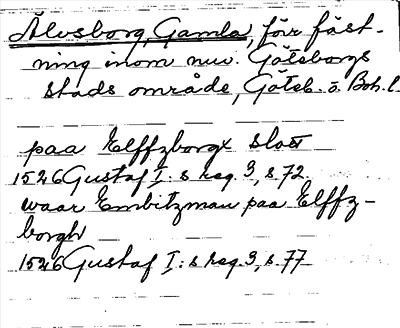 Älvsborg, Gamla, förr fäst-
ning inom nuv. Göteborgs
stads område, Göteb. o. Boh. l.
paa Elffzborgx slott
1526 Gustaf I:s reg. 3, s. 72.
waar Embitzman paa Elffz-
borgh
1526 Gustaf I:s reg. 3, s. 77